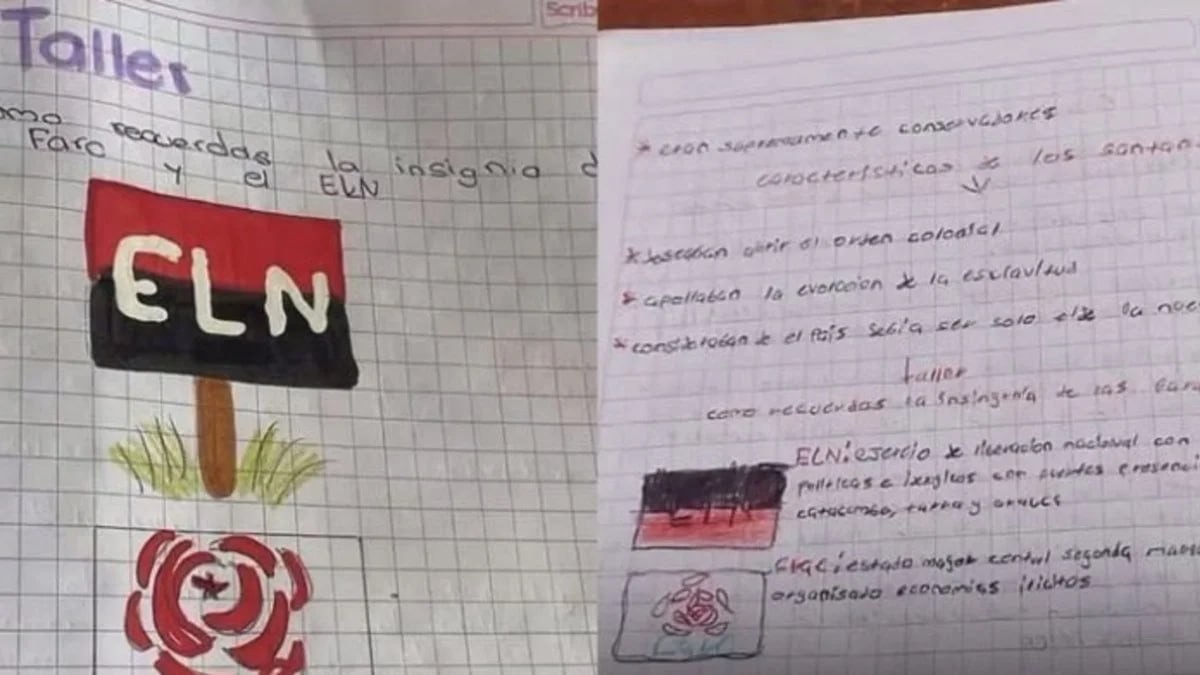 Scrib
Taller
omo recuerdas la insignia d
Farc y el ELN
ELN
* eran supremamente conservadores
características de los santan
* deseaban abrir el orden colonial
* apollaban la evorcion de la esclavitud
* considerában de el País debia ser solo
taller
como recuerdas la insingenia de las Farc
ELN: ejercio de liveración nacional con
políticas e presenci
y
estado mayor central segunda
organisada economias ilicitas